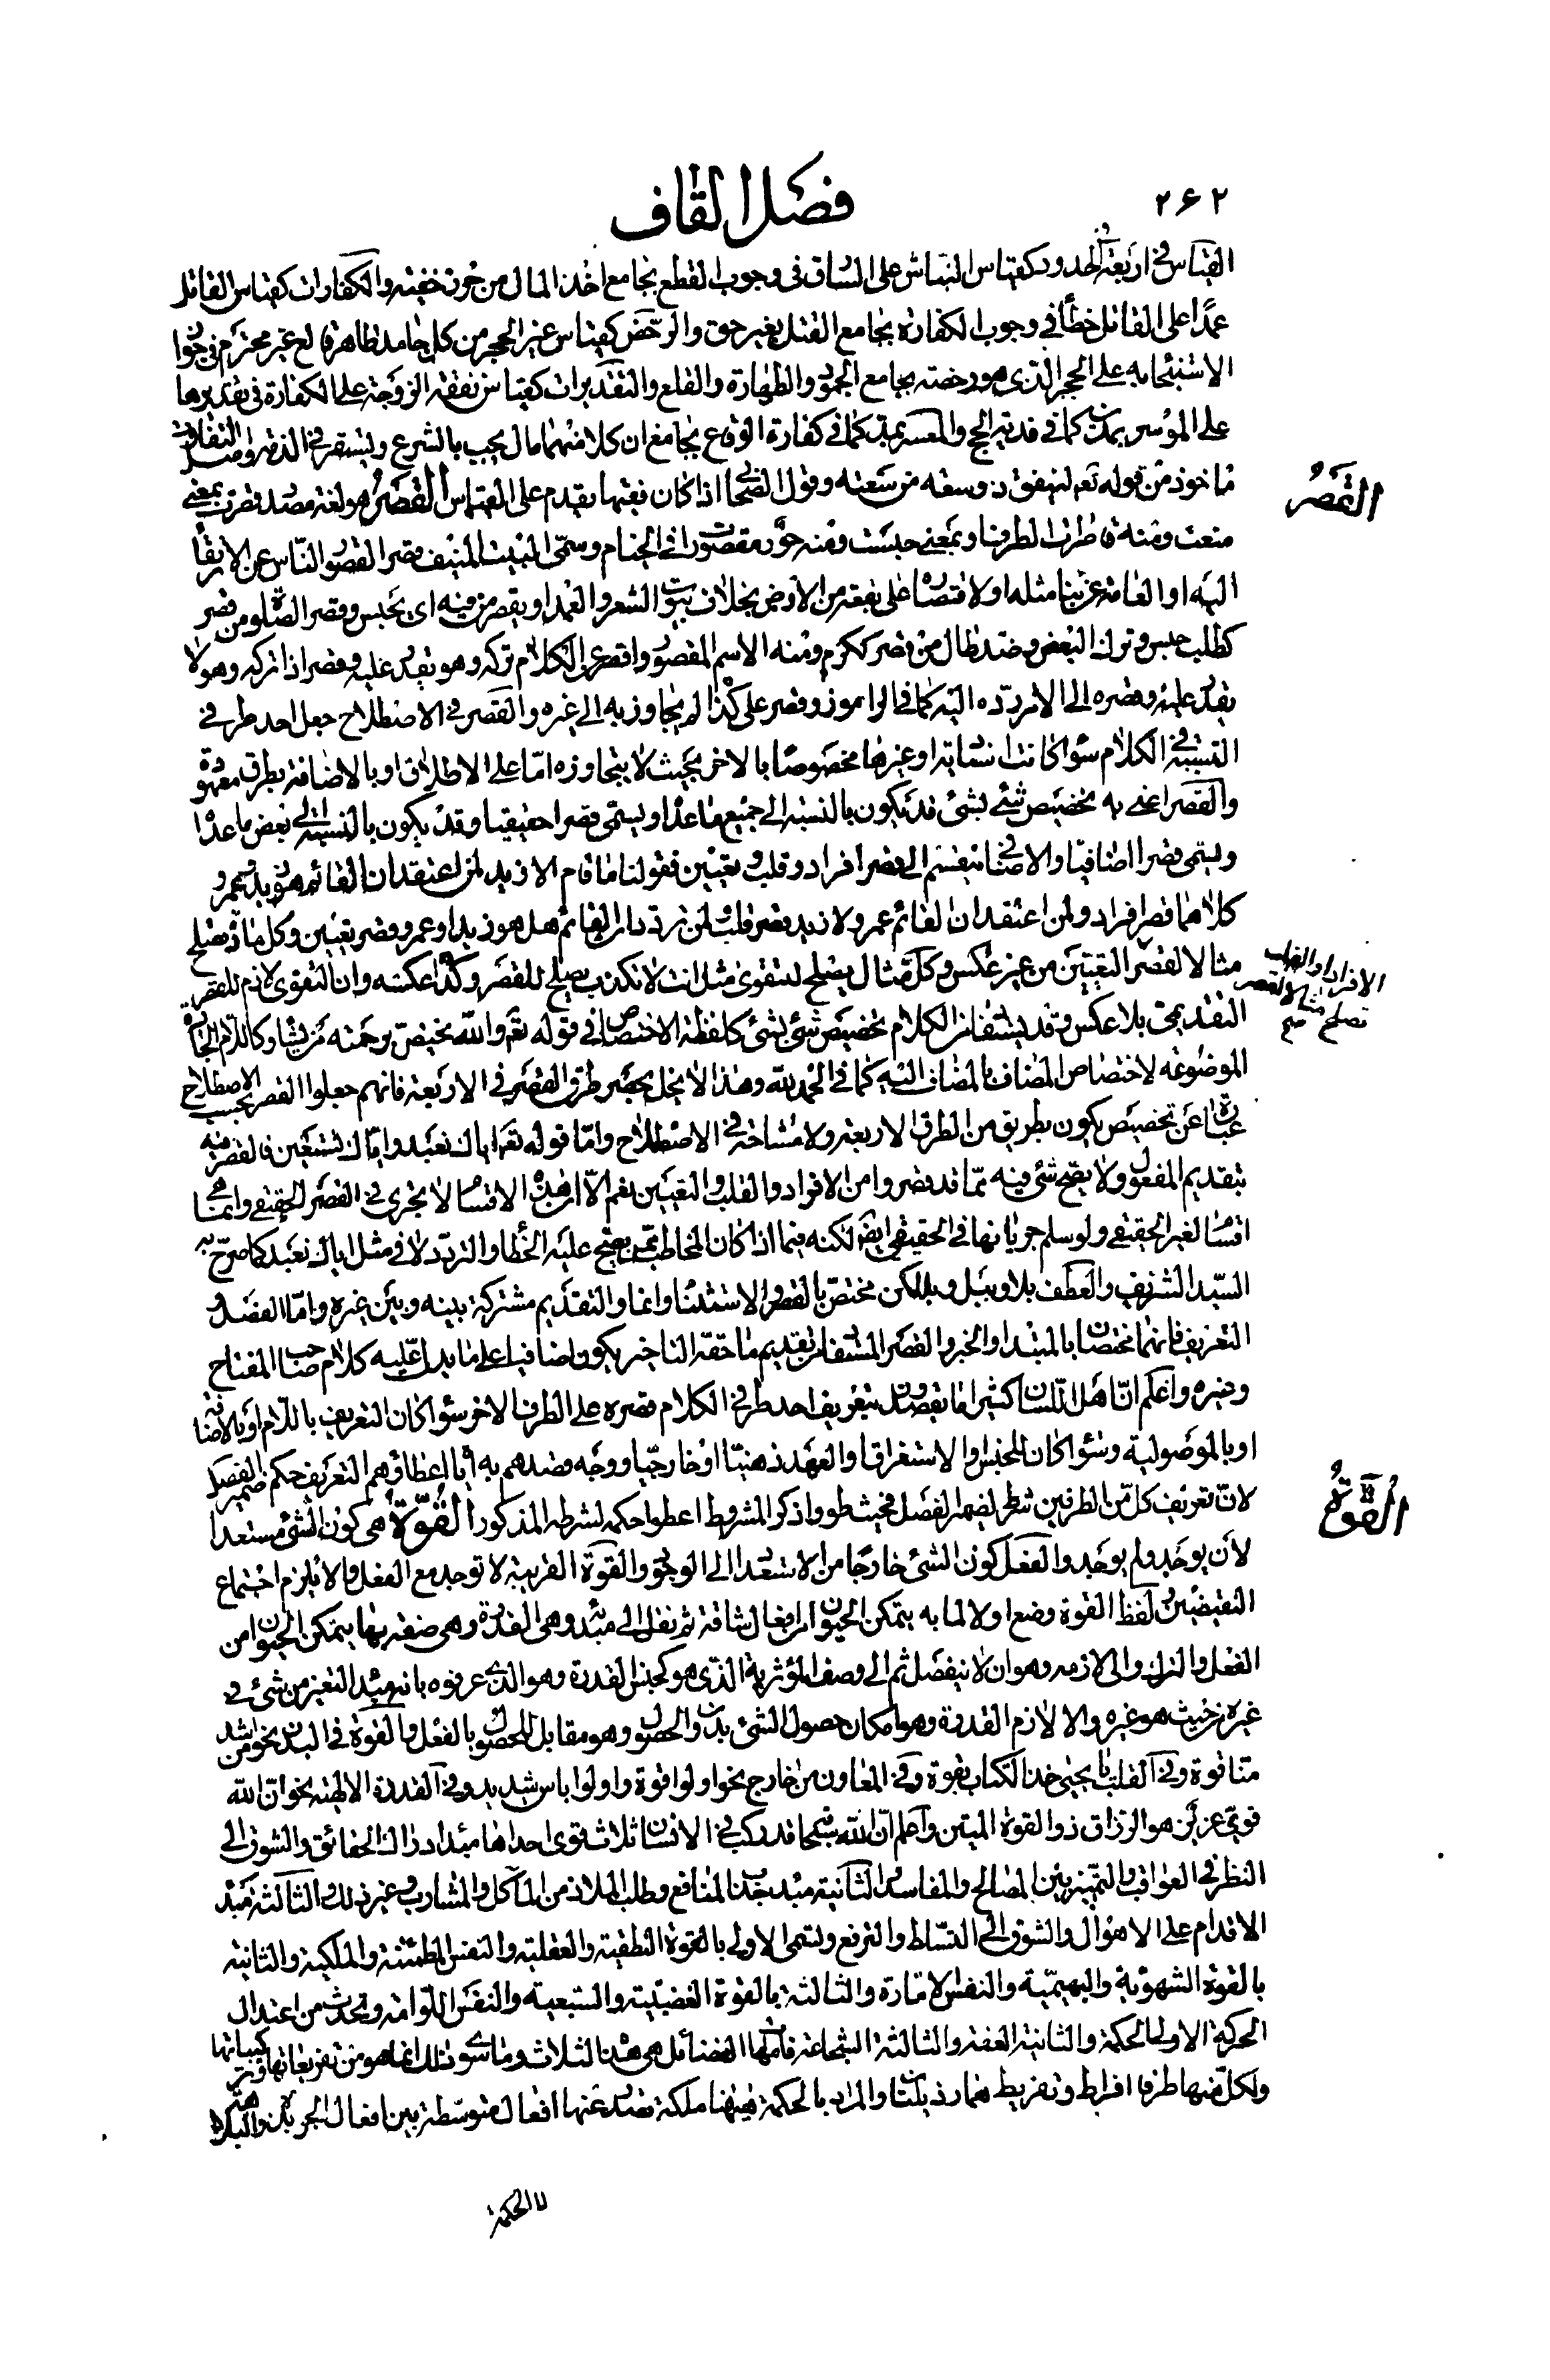 ٢۶٢
فصل القاف
القياس في اربعة الحدود كقياس النباش على السارق في وجوب القطع بجامع اخذ المال من حرز خفية والكفارات كقياس القاتل
عمدا على القاتل خطأ في وجوب الكفارة بجامع القتل بغير حق والرخص كقياس غير الحجر من كل جامد طاهر قالع غير محترم في جواز
الاستنجاء به على الحجر الذي هو رخصة بجامع الجمود والطهارة والقلع والتقديرات كقياس نفقة الزوجة على الكفارة في تقديرها
على الموسر بمدين كما في فدية الحج والمعسر بمد كما في كفارة الوقاع بجامع ان كلا منهما مال يجب بالشرع ويستقر في الذمة واصل التفاوت
ماخوذ من قوله تعه لينفق ذو سعة من سعته وقول الصحابي اذا كان فقيها يقدم على القياس القصر هو لغة مصدر قصرت بمعنى
منعت ومنه قاصرات الطرف او بمعنى حبست ومنه حور مقصورات في الخيام وسمى البيت المنيف قصرا لقصور الناس عن الارتقاء
اليه او العامة عن بناء مثله او لاقتصاره على بقعة من الارض بخلاف بيوت الشعر والعمد او يقصر من فيه اي يحبس وقصر الصلوة من قصر
كطلب حبس وترك البعض وضد طال من قصر ككرم ومنه الاسم المقصور واقصر عن الكلام تركه وهو يقدر عليه وقصر اذا تركه وهو لا
يقدر عليه وقصره الى الامر رده اليه كما في الراموز وقصر على كذا لم يجاوز به الى غيره والقصر في الاصطلاح جعل احد طرفي
النسبة في الكلام سواء كانت اسنادية او غيرها مخصوصا بالاخر بحيث لا يتجاوزه اما على الاطلاق او بالاضافة بطرق معهودة
والقصر اعني به تخصيص شئ بشئ قد يكون بالنسبة الى جميع ما عداه ويسمى قصرا حقيقيا وقد يكون بالنسبة الى بعض ما عداه
ويسمى قصرا اضافيا والاضافي ينقسم الى قصر افراد وقلب وتعيين فقولنا ما قام الا زيد لمن اعتقد ان القائم هو زيد وعمرو
كلاهما قصر افراد ولمن اعتقد ان القائم عمرو لا زيد قصر قلب ولمن تردد ان القائم هل هو زيد او عمرو قصر تعيين وكل مادة تصلح
مثالا لقصر التعيين من غير عكس وكل مثال يصلح للتقوى مثل انت لا تكذب يصلح للقصر وكذا عكسه وان التقوى لازم للقصر
التقديمي بلا عكس وقد يستفاد من الكلام تخصيص شئ بشئ كلفظة الاختصاص في قوله تعه والله يختص برحمته من يشاء وكاللام الجارة
الموضوعة لاختصاص المضاف بالمضاف اليه كما في الحمد لله وهذا لا يخل بحصر طرق القصر في الاربعة فانهم جعلوا القصر بحسب الاصطلاح
عبارة عن تخصيص يكون بطريق من الطرق الاربعة ولا مشاحة في الاصطلاح واما قوله تعه اياك نعبد واياك نستعين فالقصر فيه
بتقديم المفعول ولا يصح شئ فيه مما قد قصروا من الافراد والقلب والتعيين نعم الا ان هذه الاقسام لا تجرى في القصر الحقيقي وانما هي
اقسام لغير الحقيقي ولو سلم جريانها في الحقيقي ايضا لكنه فيما اذا كان المخاطب ممن يصح عليه الخطأ والتردد لا في مثل اياك نعبد كما صرح به
السيد الشريف والعطف بلا وببل وبلكن مختص بالقصر والاستثناء وانما والتقديم مشتركة بينه وبين غيره واما الفصل و
التعريف فانهما مختصان بالمبتدا والخبر والقصر المستفاد من تقديم ما حقه التاخير يكون اضافيا على ما يدل عليه كلام صاحب المفتاح
وغيره واعلم ان اهل اللسان كثيرا ما يقصدون بتعريف احد طرفي الكلام قصره على الطرف الاخر سواء كان التعريف باللام او بالاضافة
او بالموصولية وسواء كان للجنس او الاستغراق او العهد ذهنيا او خارجيا ووجه قصدهم به اياه اعطاؤهم التعريف حكم ضمير الفصل
لان تعريف كل من الطرفين شرط لضمير الفصل فحيث طووا ذكر المشروط اعطوا حكمه لشرطه المذكور القوة هى كون الشئ مستعدا
لان يوجد ولم يوجد والفعل كون الشئ خارجا من الاستعداد الى الوجود والقوة القريبة لا توجد مع الفعل والا يلزم اجتماع
النقيضين ولفظ القوة وضع اولا لما به يتمكن الحيوان من افعال شاقة ثم نقل الى مبدئه وهى القدرة وهى صفة بها يتمكن الحيوان من
الفعل والترك والى لازمه وهو ان لا ينفعل ثم الى وصف المؤثرية الذي هو كجنس القدرة وهو الذي عرفوه بانه مبدأ التغير من شئ في
غيره من حيث هو غيره والا لازم القدرة وهو امكان حصول الشئ بدون الحصول وهو مقابل للحصول بالفعل والقوة في البدن نحو من اشد
منا قوة وفي القلب يا يحيى خذ الكتاب بقوة وفي المعاون من خارج نحو اولوا قوة واولوا باس شديد وفي القدرة الالهية نحو ان الله
قوي عزيز هو الرزاق ذو القوة المتين واعلم ان الله سبحانه قد ركب في الانسان ثلاث قوى احداها مبدأ ادراك الحقائق والشوق الى
النظر في العواقب والتمييز بين المصالح والمفاسد الثانية مبدء جذب المنافع وطلب الملاذ من المآكل والمشارب وغير ذلك والثالثة مبدء
الاقدام على الاهوال والشوق الى التسلط والترفع وتسمى الاولى بالقوة النطقية والعقلية والنفس المطمئنة والملكية والثانية
بالقوة الشهوية والبهيمية والنفس الامارة والثالثة بالقوة الغضبية والسبعية والنفس اللوامة وتحدث من اعتدال
الحركة الاولى الحكمة والثانية العفة والثالثة الشجاعة فامهات الفضائل هى هذه الثلاث وما سوى تلك انما هو من تفريعاتها وتركيباتها
ولكل منها طرفا افراط وتفريط هما رذيلتان والمراد بالحكمة هيهنا ملكة تصدر عنها افعال متوسطة بين افعال الجربزة والبلاهة
القصر
الافراد والقلب
مثالا لقصر
تصلح صح
القوة
لا الحكمة